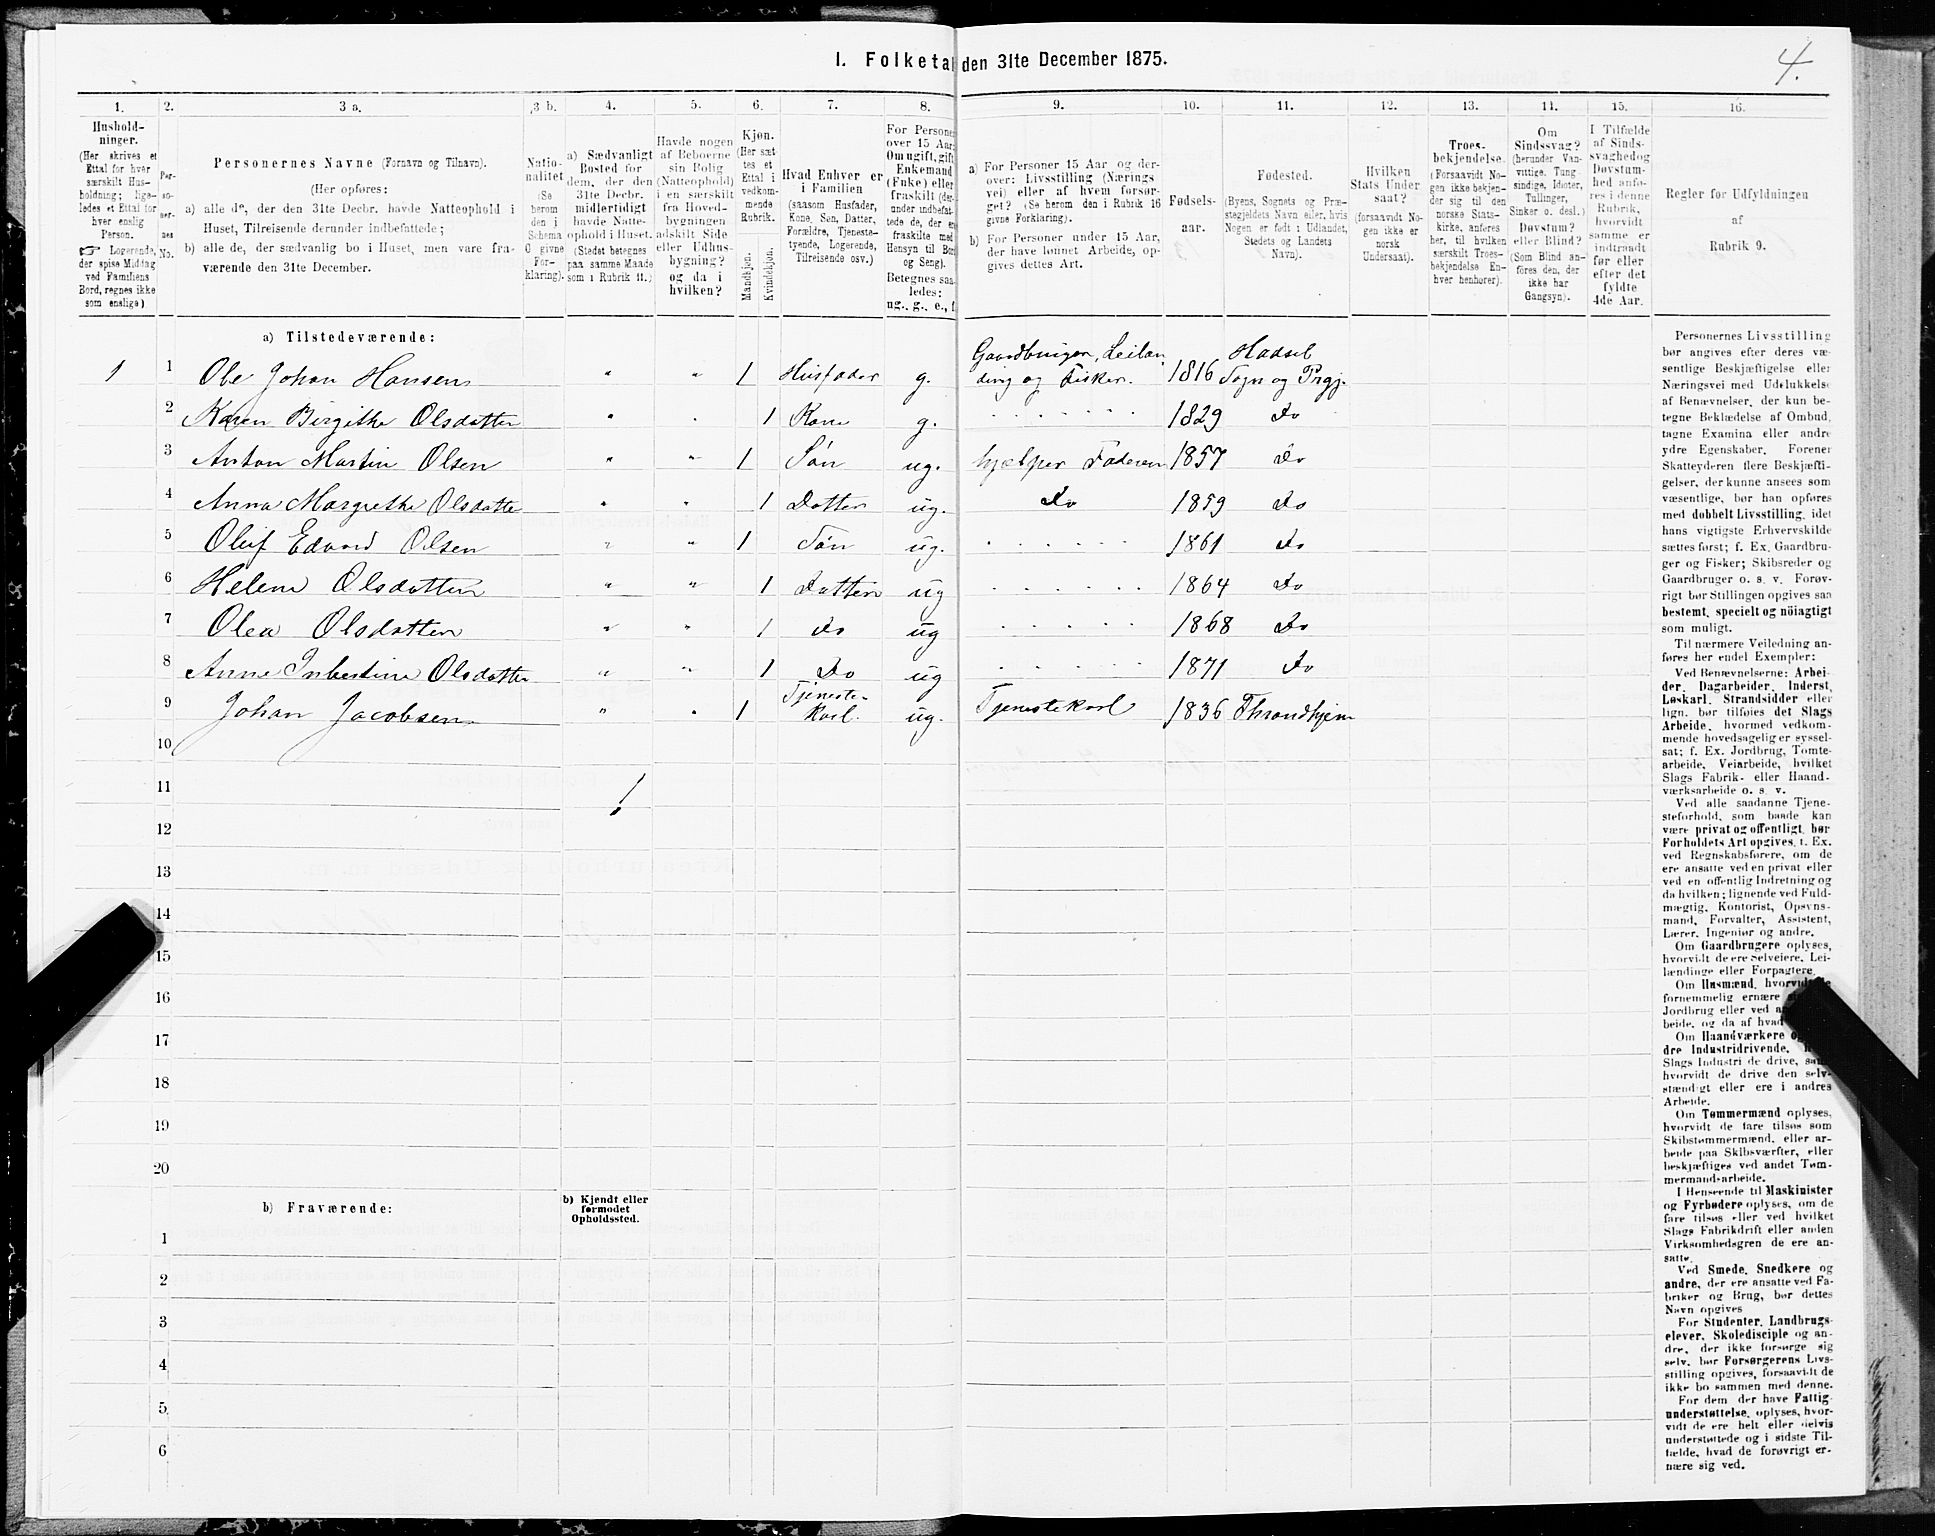 1. Folketal den 31te December 1875.
4.
1. 2. 3 a. 3 b. 4. 5. 6. 7. 8. 9. 10. 11. 12. 13. 14. 15. 16.
Hushold-
ninger.
(Her skrives et
Ettal for hver
særskilt Hus-
holdning; lige-
ledes et Ettal for
hver enslig
Person.
☞ Logerende,
der spise Middag
ved Familiens
Bord, regnes ikke
som enslige)
Per-
so-
ner-
nes
No.
Personernes Navne (Fornavn og Tilnavn).
(Her opføres:
a) alle de, der den 31te Decbr. havde Natteophold i
Huset, Tilreisende derunder indbefattede;
b) alle de, der sædvanlig bo i Huset, men vare fra-
værende den 31te December.
Natio-
nalitet
(Se
herom
den i
Schema
O givne
For-
klaring).
a) Sædvanligt
Bosted for
dem, der den
31te Decbr.
midlertidigt
havde Natte-
ophold i Huset.
(Stedet betegnes
paa samme Maade
som i Rubrik 11.)
Havde nogen
af Beboerne
sin Bolig
(Natteophold)
i en særskilt
fra Hoved-
bygningen
adskilt Side
eller Udhus-
bygning?
og da i
hvilken?
Kjøn.
(Her sæt-
tes et
Ettal i
vedkom-
mende
Rubrik.
Mandkjøn.
Kvindekjøn.
Hvad Enhver er
i Familien
(saasom Husfader,
Kone, Søn, Datter,
Forældre, Tjeneste-
tyende, Logerende,
Tilreisende osv.)
For Persone
over 15 Aar:
Om ugift, gift
Enkemand
(Enke) eller
fraskilt (der-
under indbefat-
tede de, der er
fraskilte med
Hensyn til Bo
og Seng).
Betegnes saa-
ledes:
ug., g., e., f
a) For Personer 15 Aar og der-
over: Livsstilling (Nærings
vei) eller af hvem forsør-
get? (Se herom den i Rubrik 16
givne Forklaring).
b) For Personer under 15 Aar,
der have lønnet Arbeide, op-
gives dettes Art.
Fødsels-
aar.
Fødested.
(Byens, Sognets og Præ-
stegjeldets Navn eller, hvis
Nogen er født i Udlandet,
Stedets og Landets
Navn).
Hvilken
Stats Under
saat?
(forsaavidt No-
gen ikke er
norsk
Undersaat).
Troes-
bekjendelse.
(Forsaavidt No-
gen ikke bekjen-
der sig til den
norske Stats-
kirke, anføres
her, til hvilken
særskilt Troes-
bekjendelse En-
hver henhører).
Om
Sindssvag?
(herunder Van-
vittige, Tung-
sindige, Idioter,
Tullinger,
Sinker o. desl.)
Døvstum?
eller Blind?
(Som Blind an-
føres den, der
ikke har
Gangsyn).
I Tilfælde
af Sinds-
svaghed og
Døvstum-
hed anfø-
res i denne
Rubrik,
hvorvidt
samme er
indtraadt
før eller
efter det
fyldte
4de Aar.
Regler for Udfyldningen
af
Rubrik 9.
a) Tilstedeværende:
1 1 Ole Johan Hansen " " 1 Husfader g. Gaardbruger, Leilæn
ding og Fisker. 1816 Hadsel
Sogn og Prgj.
2 Karen Birgithe Olsdatter " . 1 Kone g. . . . . . . . 1829 Do
3 Anton Martin Olsen " " 1 Søn ug. hjælper Faderen 1857 Do
4 Anna Margrethe Olsdatte " " 1 Datter ug. Do 1859 Do
5 Oluf Edvard Olsen " " 1 Søn ug. . . . . . . 1861 Do
6 Helene Olsdatter " " 1 Datter ug . . . . . . 1864 Do
7 Olea Olsdatter " " 1 do ug . . . . . . 1868 Do
8 Anne Inbertine Olsdatter " " 1 Do ug . . . . . . 1871 Do
9 Johan Jacobsen " " 1 Tjeneste-
Karl. ug. Tjenestekarl 1836 Throndhjem
10
11
12
13
14
15
16
17
18
19
20
b) Fraværende:
b) Kjendt eller
formodet
Opholdssted.
1
2
3
4
5
6
Personernes Livsstilling
bør angives efter deres væ-
sentlige Beskjæftigelse eller
Næringsvei med Udelukkelse
af Benævnelser, der kun be-
tegne Beklædelse af Ombud,
tagne Examina eller andre
ydre Egenskaber. Forener
Skatteyderen flere Beskjæfti-
gelser, der kunne ansees som
væsentlige, bør han opføres
med dobbelt Livsstilling, idet
hans vigtigste Erhvervskilde
sættes først; f. Ex. Gaardbru-
ger og Fisker; Skibsreder og
Gaardbruger o. s. v. Forøv-
rigt bør Stillingen opgives saa
bestemt, specielt og nöiagtigt
som muligt.
Til nærmere Veiledning an-
føres her endel Exempler:
Ved Benævnelserne: Arbei-
der, Dagarbeider, Inderst,
Løskarl, Strandsidder eller
lign. bør tilføies det Slags
Arbeide, hvormed vedkom-
mende hovedsagelig er syssel-
sat; f. Ex. Jordbrug, Tomte-
arbeide, Veiarbeide, hvilket
Slags Fabrik- eller Haand-
værksarbeide o. s. v.
Ved alle saadanne Tjene-
steforhold, som baade kan
være privat og offentligt, bør
Forholdets Art opgives, t. Ex.
ved Regnskabsførere, om de
ere ansatte ved en privat eller
ved en offentlig Indretning og
da hvilken; lignende ved Fuld-
mægtig, Kontorist, Opsyns-
mand, Forvalter, Assistent,
Lærer, Ingeniør og andre.
Om Gaardbrugere oplyses,
hvorvidt de ere Selveiere, Lei-
lændinge eller Forpagtere.
Om Husmænd, hvorvidt de
fornemmelig ernære
Jordbrug eller ved
beide, og da af hvad
Om Haandværkere
dre Industridrivende,
Slags Industri de drive,
hvorvidt de drive den selv-
stændigt eller ere i andres
Arbeide.
Om Tømmermænd oplyses,
hvorvidt de fare tilsøs som
Skibstømmermænd, eller ar-
beide paa Skibsværfter, eller
beskjæftiges ved andet Tøm-
mermandsarbeide.
I Henseende til Maskinister
og Fyrbødere oplyses, om de
fare tilsøs eller ved hvilket
Slags Fabrikdrift eller anden
Virksomhedsgren de ere an-
satte.
Ved Smede, Snedkere og
andre, der ere ansatte ved Fa-
briker og Brug, bør dettes
Navn opgives
For Studenter, Landbrugs-
elever, Skoledisciple og an-
dre, der ikke forsørge sig
selv, bør Forsørgerens Livs-
stilling opgives, forsaavidt de
ikke bo sammen med denne.
For dem der have Fattig-
understøttelse, oplyses, hvor-
vidt de ere helt eller delvis
understøttede og i sidste Til-
fælde, hvad de forøvrigt er-
nære sig ved.